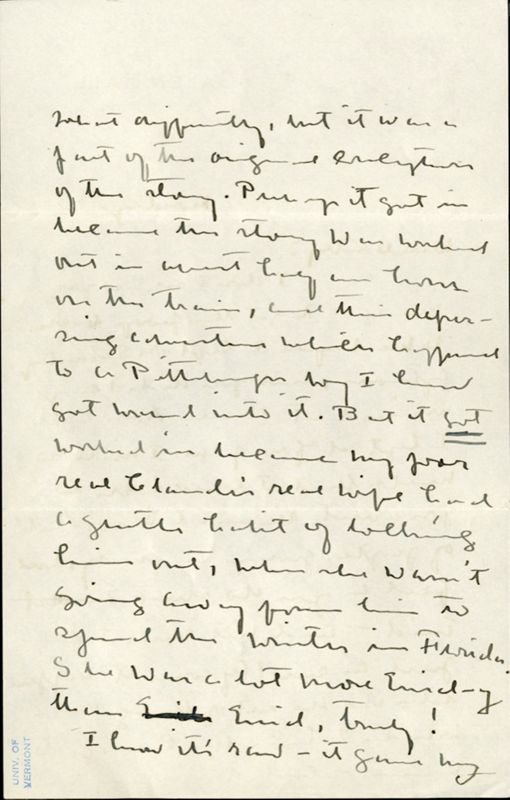 what differently, but it was a
part of the original conception
of the story. Perhaps it got in
because the story was worked
out in about half an hour
on the train, and this depres-
sing connection which happened
to a Pittsburgh boy I knew
got wound into it. But it got
worked in because my poor
real Claude's real wife had
a gentle habit of locking
him out, when she wasn't
going away from him to
spend the winter in Florida.
She was a lot more Enid-y
than Enid, truly!
I know it's raw – it gave my
UNIV. OF
VERMONT